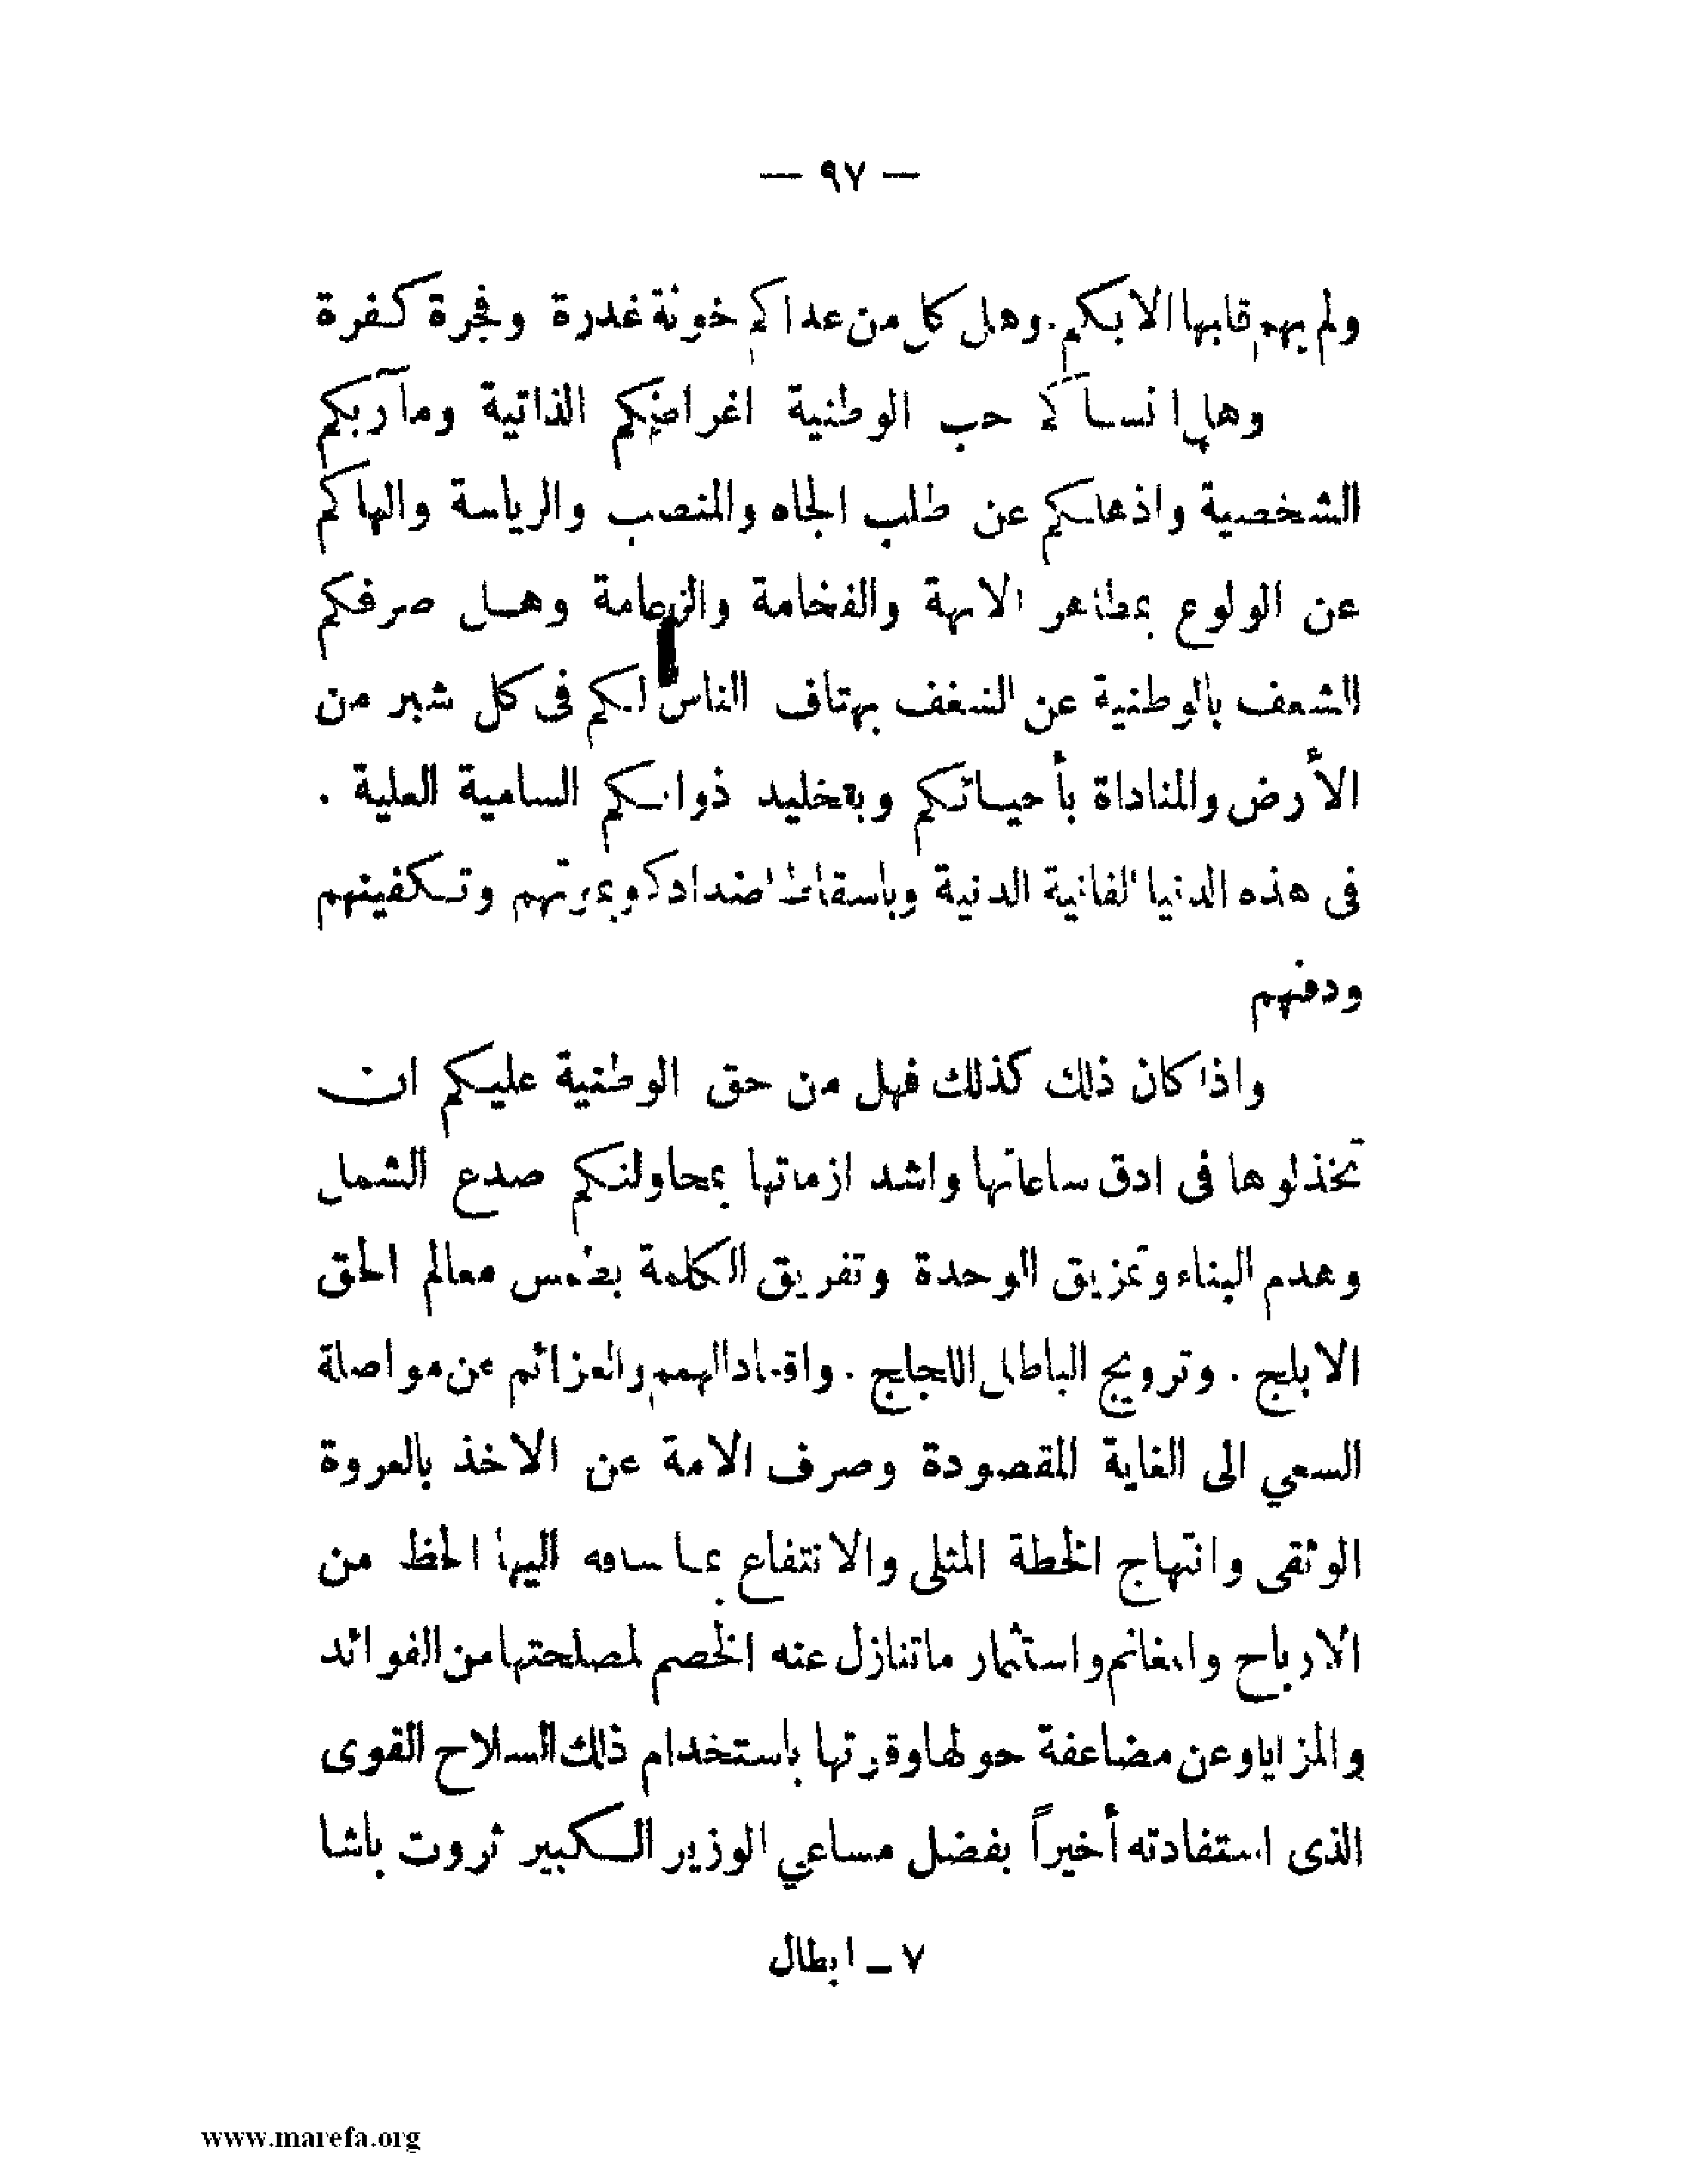 — ٩٧ —
ولم يهم قلبها الا بكم. وهل كل من عداكم خونة غدرة وفجرة كفرة
وهل انساكم حب الوطنية اغراضكم الذاتية ومآربكم
الشخصية واذهلكم عن طلب الجاه والمنصب والرياسة والهاكم
عن الولوع بمظاهر الابهة والفخامة والزعامة وهل صرفكم
الشغف بالوطنية عن الشغف بهتاف الناس لكم فى كل شبر من
الأرض والمناداة بأحيائكم وبتخليد ذواتكم السامية العلية .
فى هذه الدنيا الفانية الدنية وباسقاط اضدادكم وبموتهم وتكفينهم
ودفنهم
واذا كان ذلك كذلك فهل من حق الوطنية عليكم ان
تخذلوها فى ادق ساعاتها واشد ازماتها بمحاولتكم صدع الشمل
وهدم البناء وتمزيق الوحدة وتفريق الكلمة بطمس معالم الحق
الابلج . وترويج الباطل اللجاج . واقعاد الهمم والعزائم عن مواصلة
السعي الى الغاية المقصودة وصرف الامة عن الاخذ بالعروة
الوثقى وانتهاج الخطة المثلى والانتفاع بما ساقه اليها الحظ من
الارباح والمغانم واستثمار ماتنازل عنه الخصم لمصلحتها من الفوائد
والمزايا وعن مضاعفة حولها وقوتها باستخدام ذلك السلاح القوى
الذى استفادته أخيراً بفضل مساعي الوزير الكبير ثروت باشا
٧ – ابطال
www.marefa.org